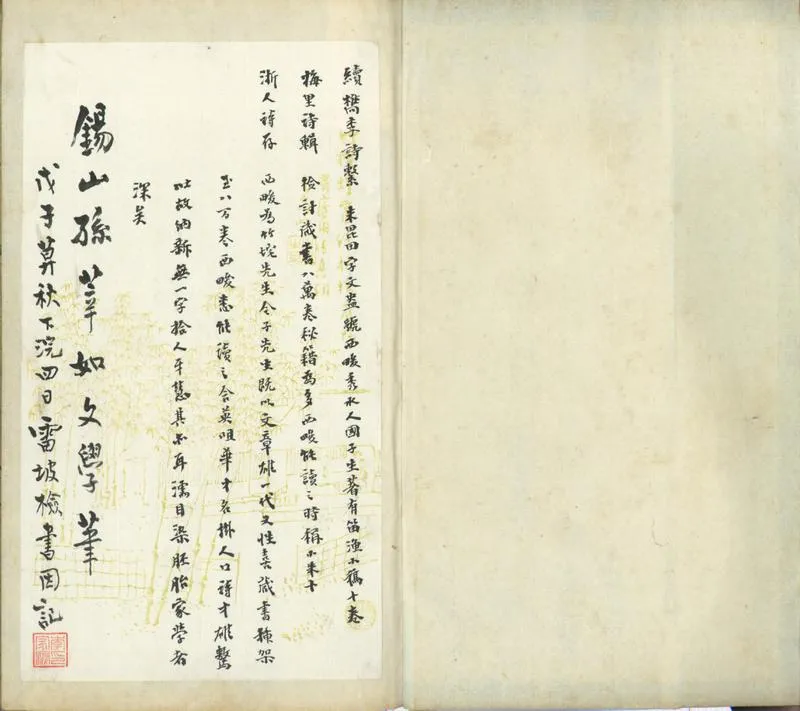 續檇李詩繫 朱昆田字文盎號西畯秀水人國子生著有笛漁小稿十卷
梅里詩輯 檢討藏書八萬卷秘籍為多西畯能讀之時稱小朱十
浙人詩存 西畯為竹垞先生令子先生既以文章雄一代又性喜藏書插架
至八万卷西畯悉能讀之含英咀華才名掛人口詩才雄驁
吐故納新無一字拾人牙慧其亦耳濡目染胚胎家學者
深矣
錫山孫莘如文學華
戊子莫秋下浣四日雷坡檢書因記